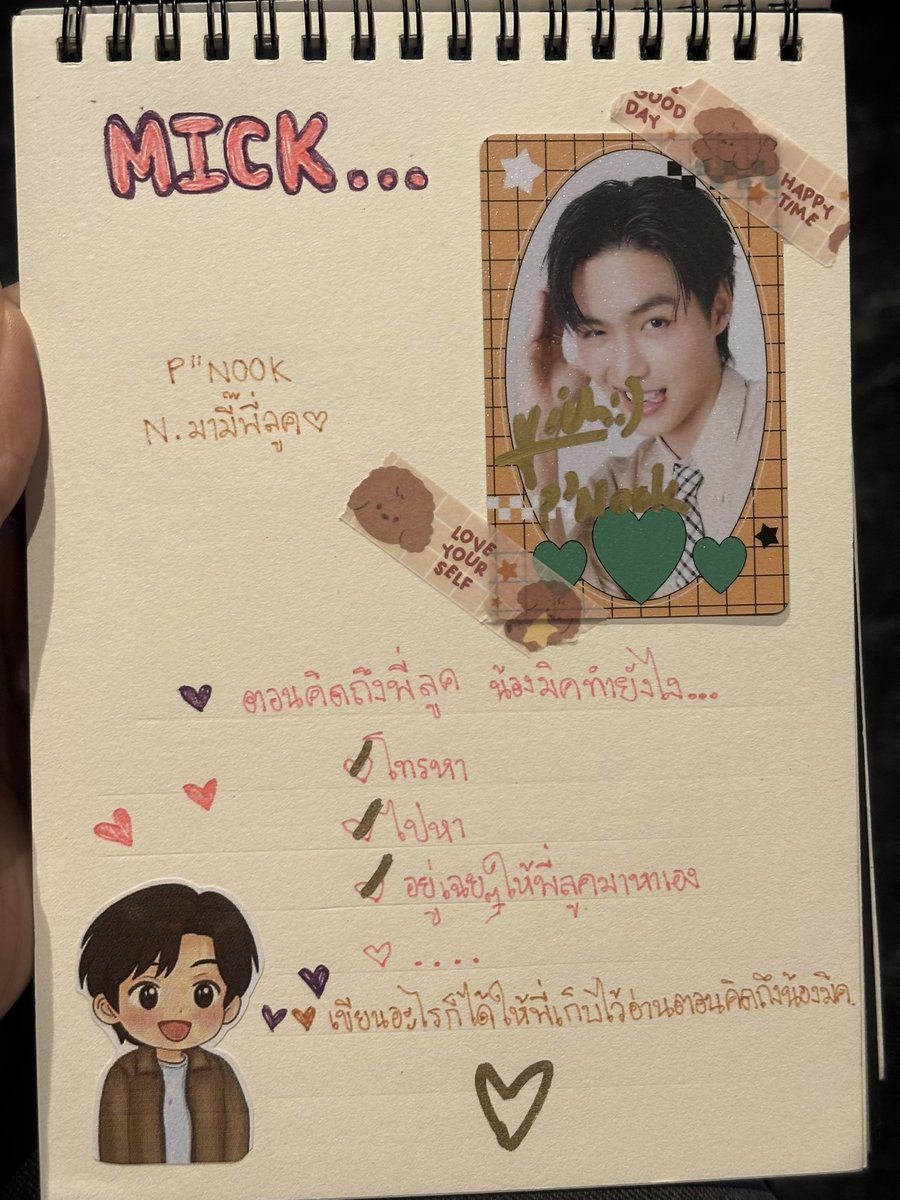 MICK...
GOOD
DAY
HAPPY
TIME
P"NOOK
N.มามี๊พี่ลูค♡
P'Nook
LOVE
YOUR
SELF
ตอนคิดถึงพี่ลูค น้องมิคทำยังไง...
โทรหา
ไปหา
อยู่เฉยๆให้พี่ลูคมาหาเอง
....
เขียนอะไรก็ได้ให้พี่เก็บไว้อ่านตอนคิดถึงน้องมิค.